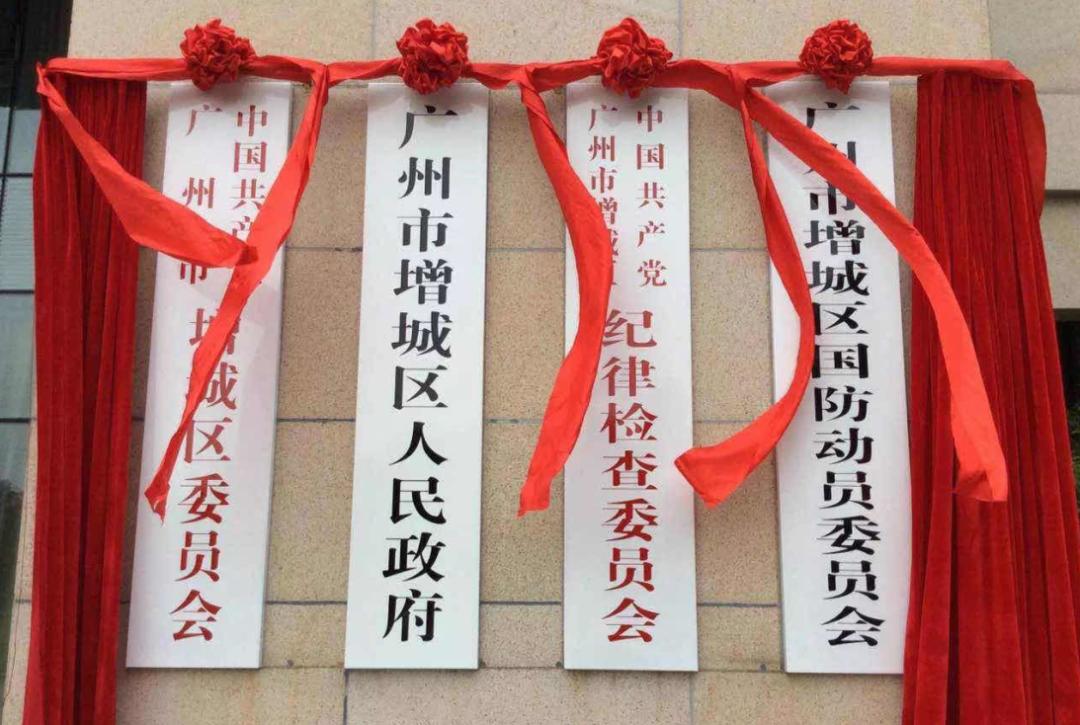 中国共产
广州市
增城区委员会
广州市增城区人民政府
中国共产党
广州市增城
纪律检查委员会
广州市增城区国防动员委员会